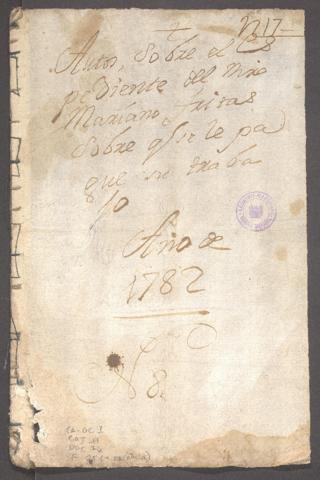 Nº 17
Autos, sobre el Es
pediente del Mro
Mariano fritas
sobre qe se le pa
gue su traba
jo
Año de
1782
Nº 8.
CA-OC 1
CAJ. 11
DOC